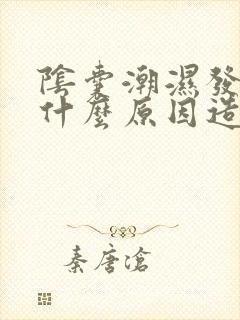 陰囊潮濕發
什麼原因造
秦唐滄